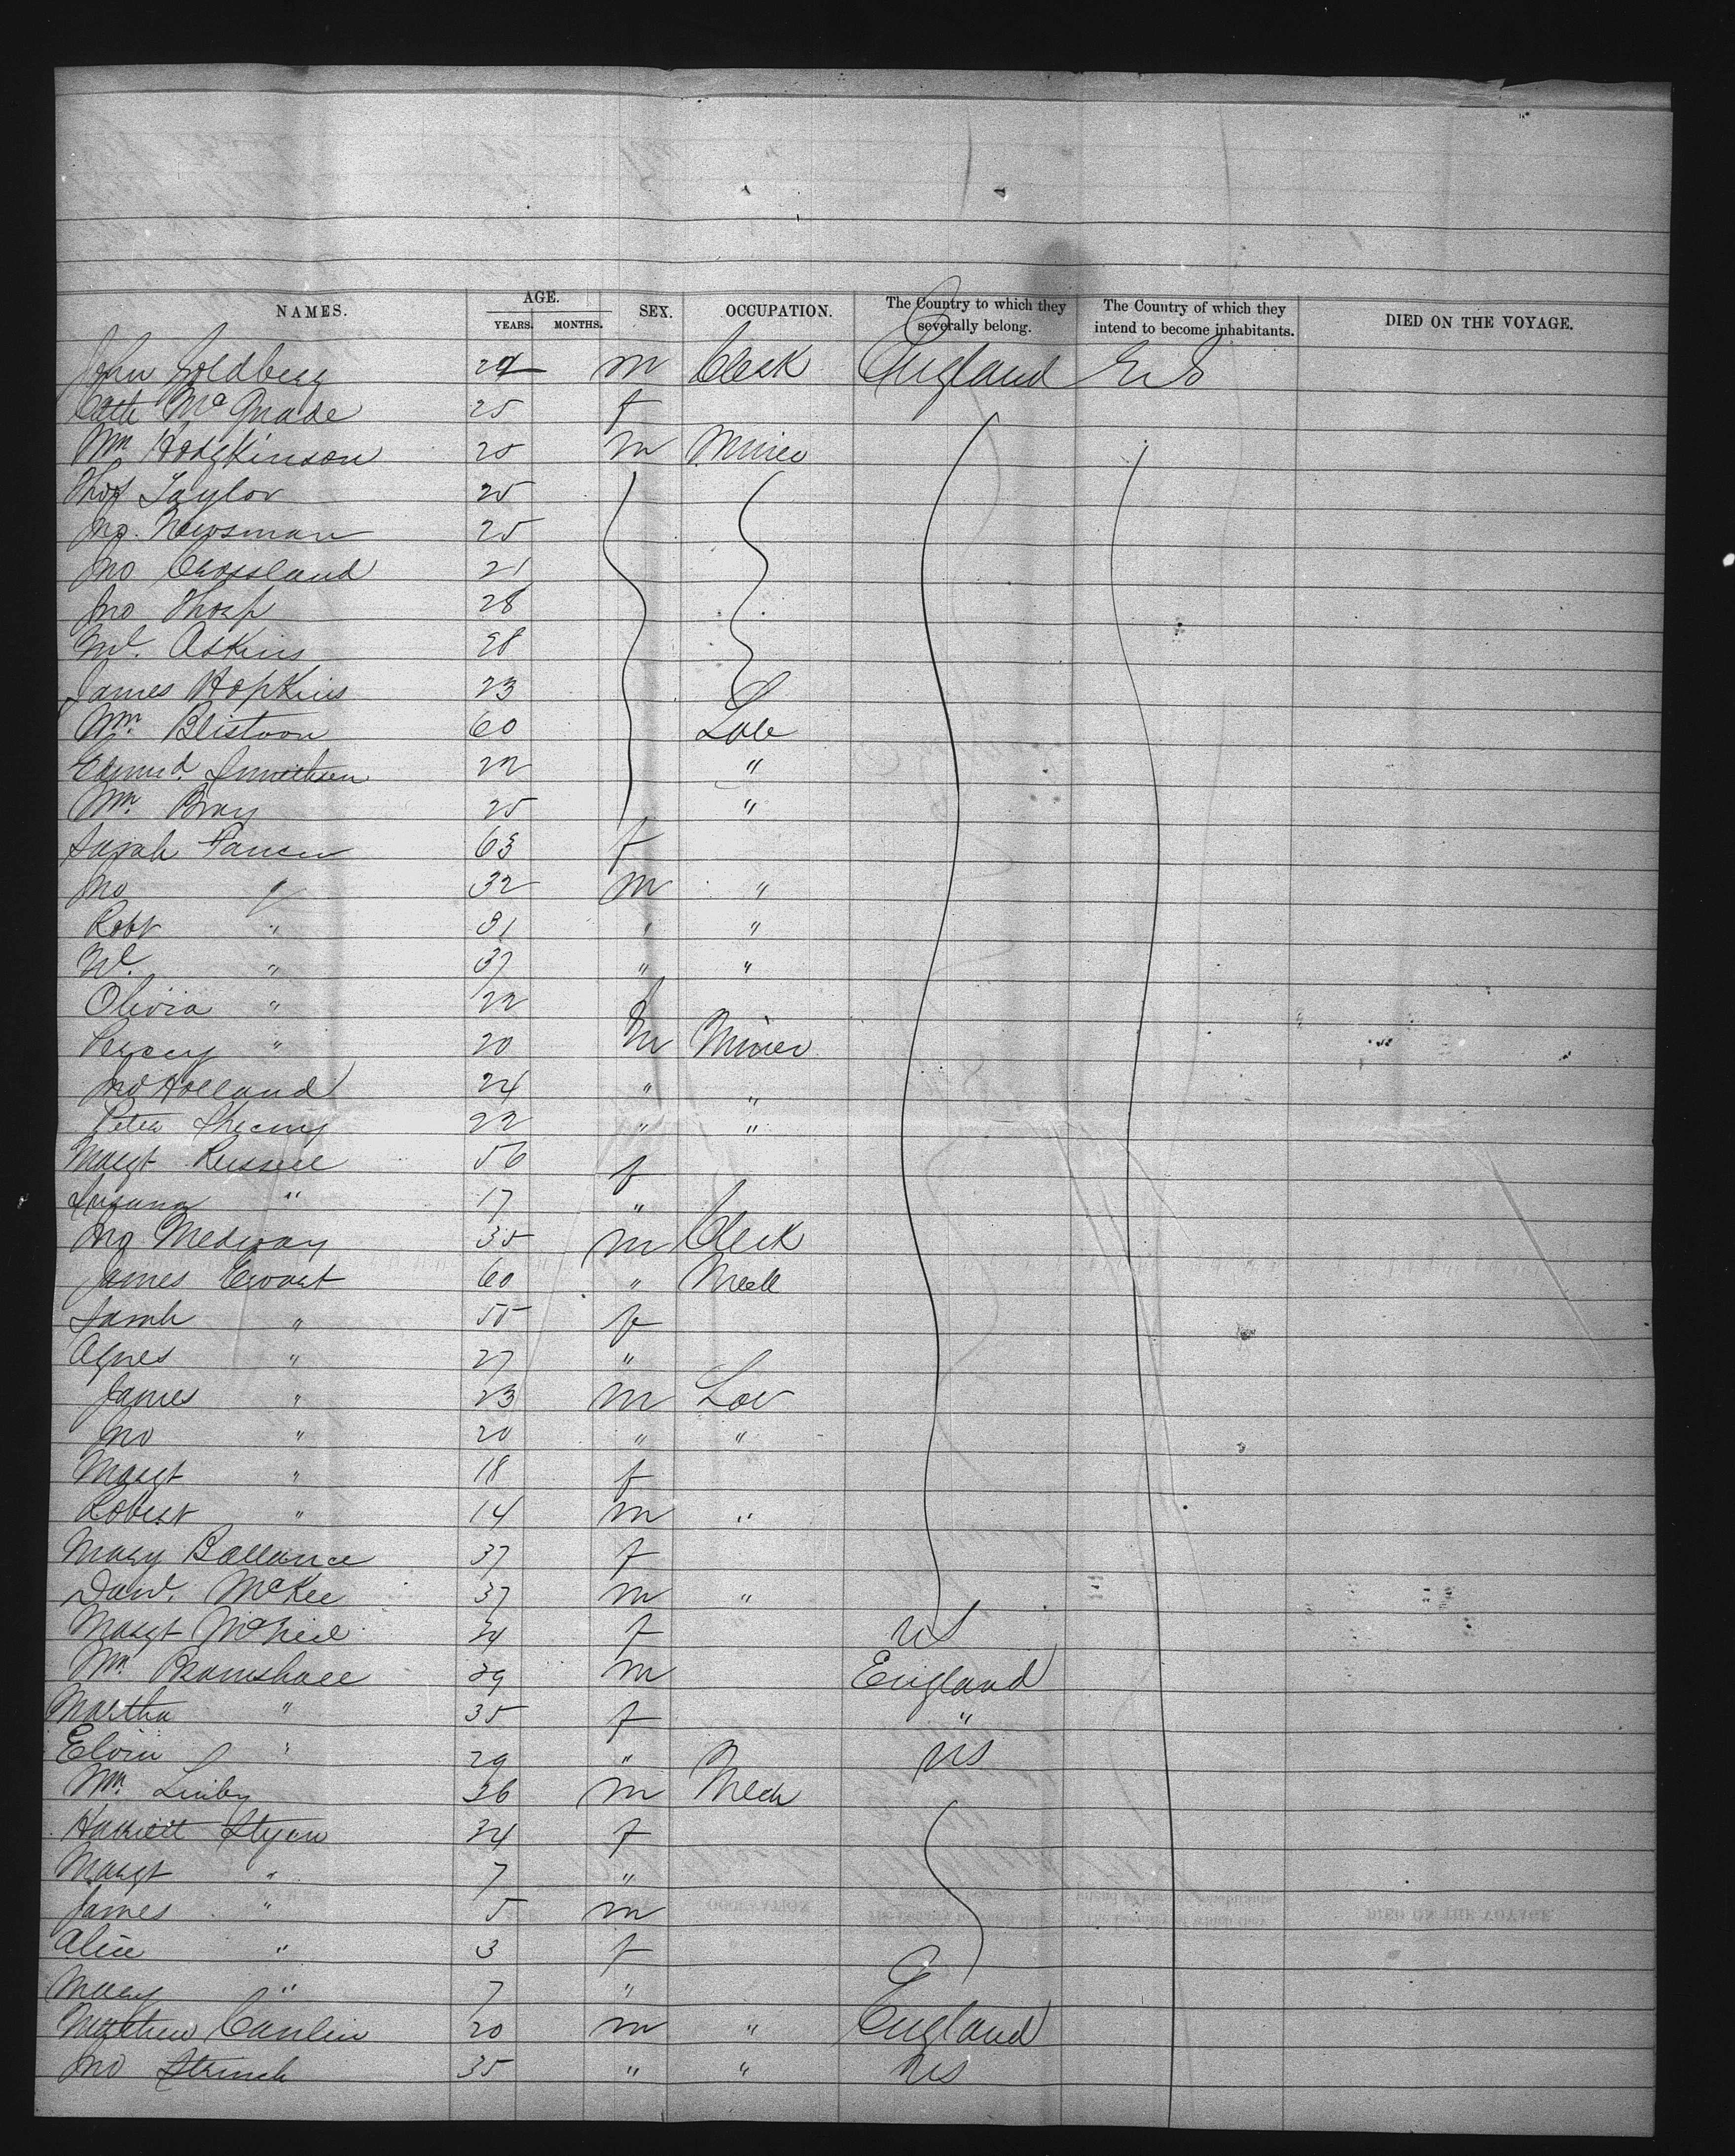 NAMES. AGE. YEARS. MONTHS. SEX. OCCUPATION. The Country to which they severally belong. The Country of which they intend to become inhabitants. DIED ON THE VOYAGE.
John Goldberg 24 m Clerk England US
Cath McQuade 25 f
Wm Hodgkinson 25 m Miner
Thos Taylor 25
Jno. Newsman 25
Jno Crossland 21
Jno Thorp 28
Askins 28
James Hopkins 23
Wm. Blistoon 60 Lab
Edmd. 22 "
Wm. Bray 25 "
Sarah 63 f
Jno " 32 m "
Robt " 31 " "
" 37 " "
Olivia " 22 f
Percy " 20 m Miner
Jno Holland 24 " "
Peter 22 " "
Margt Russell 56 f
" 17 "
Jno Medway 35 m Clerk
James 60 " Mech
Sarah " 55 f
Agnes " 27 "
James " 23 m Lab
Jno " 20 " "
Margt " 18 f
Robert " 14 m "
Mary Ballance 37 f
Davd. McKee 37 m "
Margt McNeil 34 f US
Wm. Bramshall 39 m England
Martha " 35 f "
" 29 " US
Wm. 36 m Mech
Harriett Styan 34 f
Margt " 7 "
James " 5 m
Alice " 3 f
Mary " 7 "
Matthew Canlin 20 m " England
Jno 35 " " US